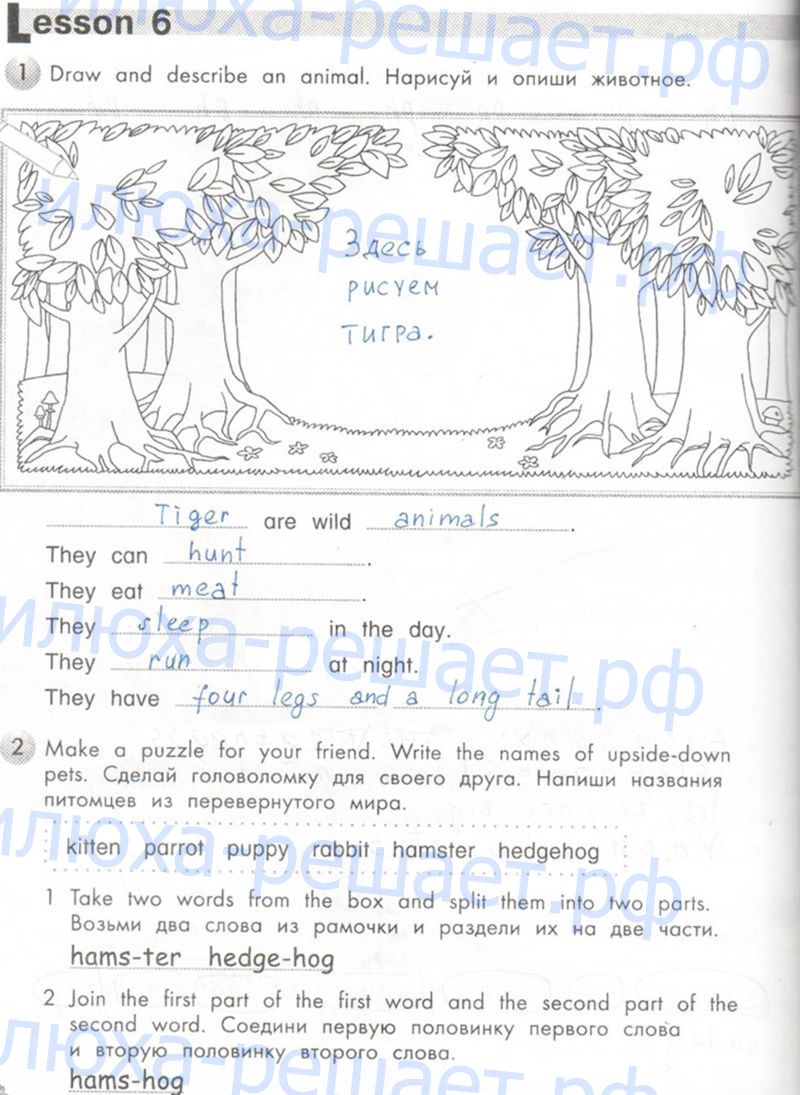 Lesson 6
1 Draw and describe an animal. Нарисуй и опиши животное.
Здесь
рисуем
тигра.
Tiger are wild animals.
They can hunt.
They eat meat.
They sleep in the day.
They run at night.
They have four legs and a long tail.
2 Make a puzzle for your friend. Write the names of upside-down
pets. Сделай головоломку для своего друга. Напиши названия
питомцев из перевернутого мира.
kitten parrot puppy rabbit hamster hedgehog
1 Take two words from the box and split them into two parts.
Возьми два слова из рамочки и раздели их на две части.
hams-ter hedge-hog
2 Join the first part of the first word and the second part of the
second word. Соедини первую половинку первого слова
и вторую половинку второго слова.
hams-hog
илюха-решает.рф
илюха-решает.рф
илюха-решает.рф
илюха-решает.рф
илюха-решает.рф